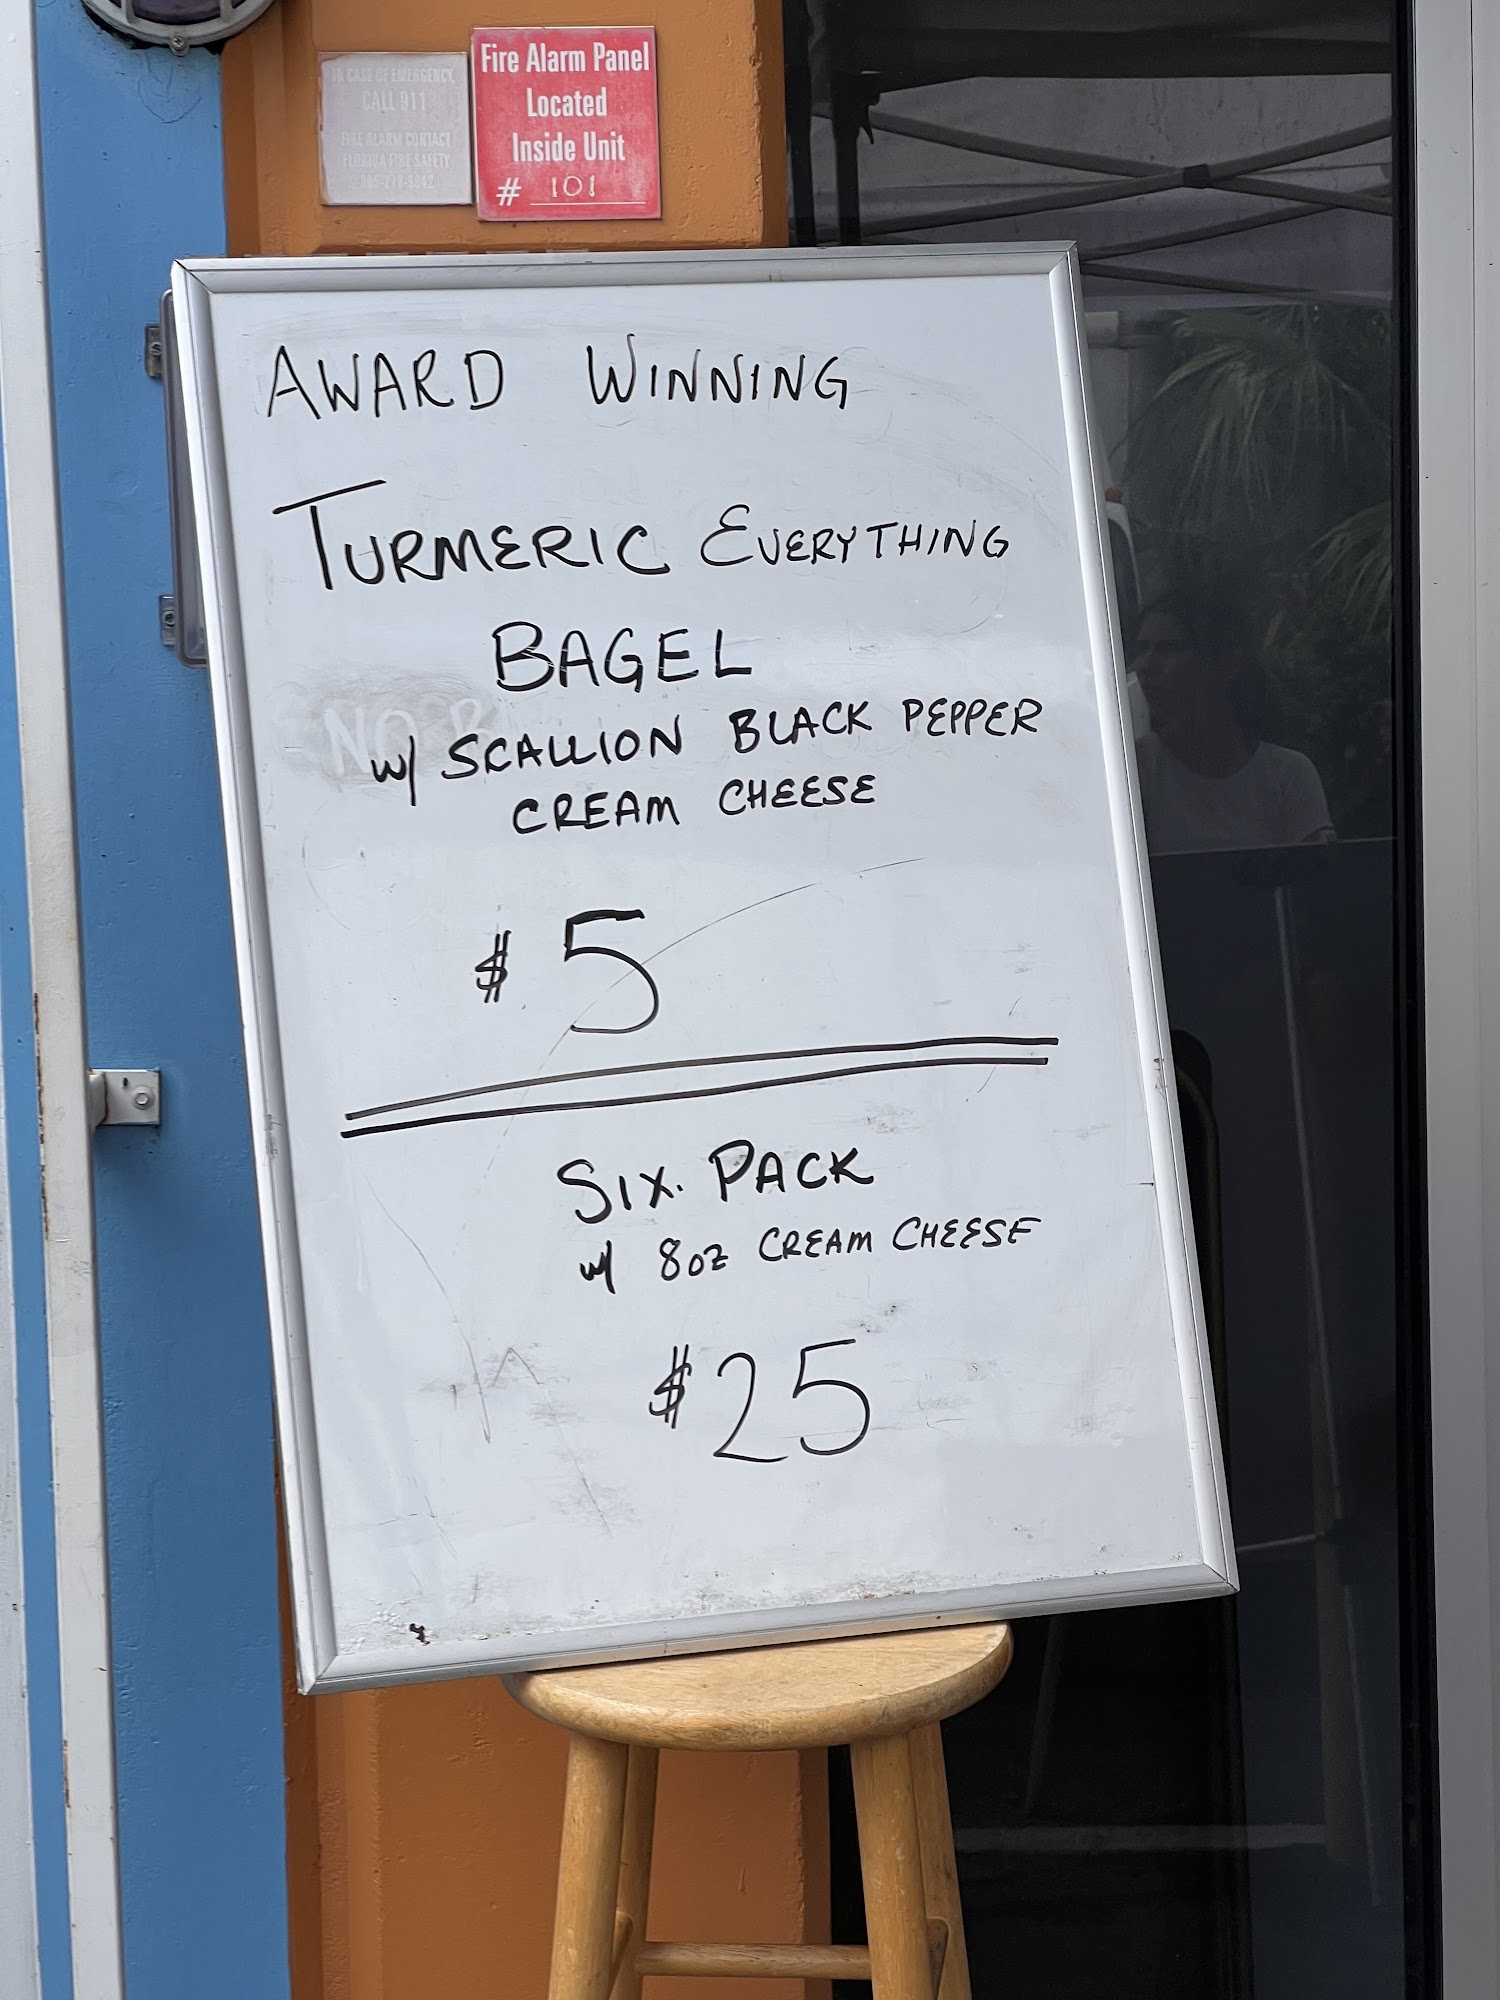 IN CASE OF EMERGENCY,
CALL 911
FIRE ALARM CONTACT
FLORIDA FIRE SAFETY
Fire Alarm Panel
Located
Inside Unit
# 101
AWARD WINNING
TURMERIC EVERYTHING
BAGEL
w/ SCALLION BLACK PEPPER
CREAM CHEESE
$ 5
SIX. PACK
w/ 8oz CREAM CHEESE
$25